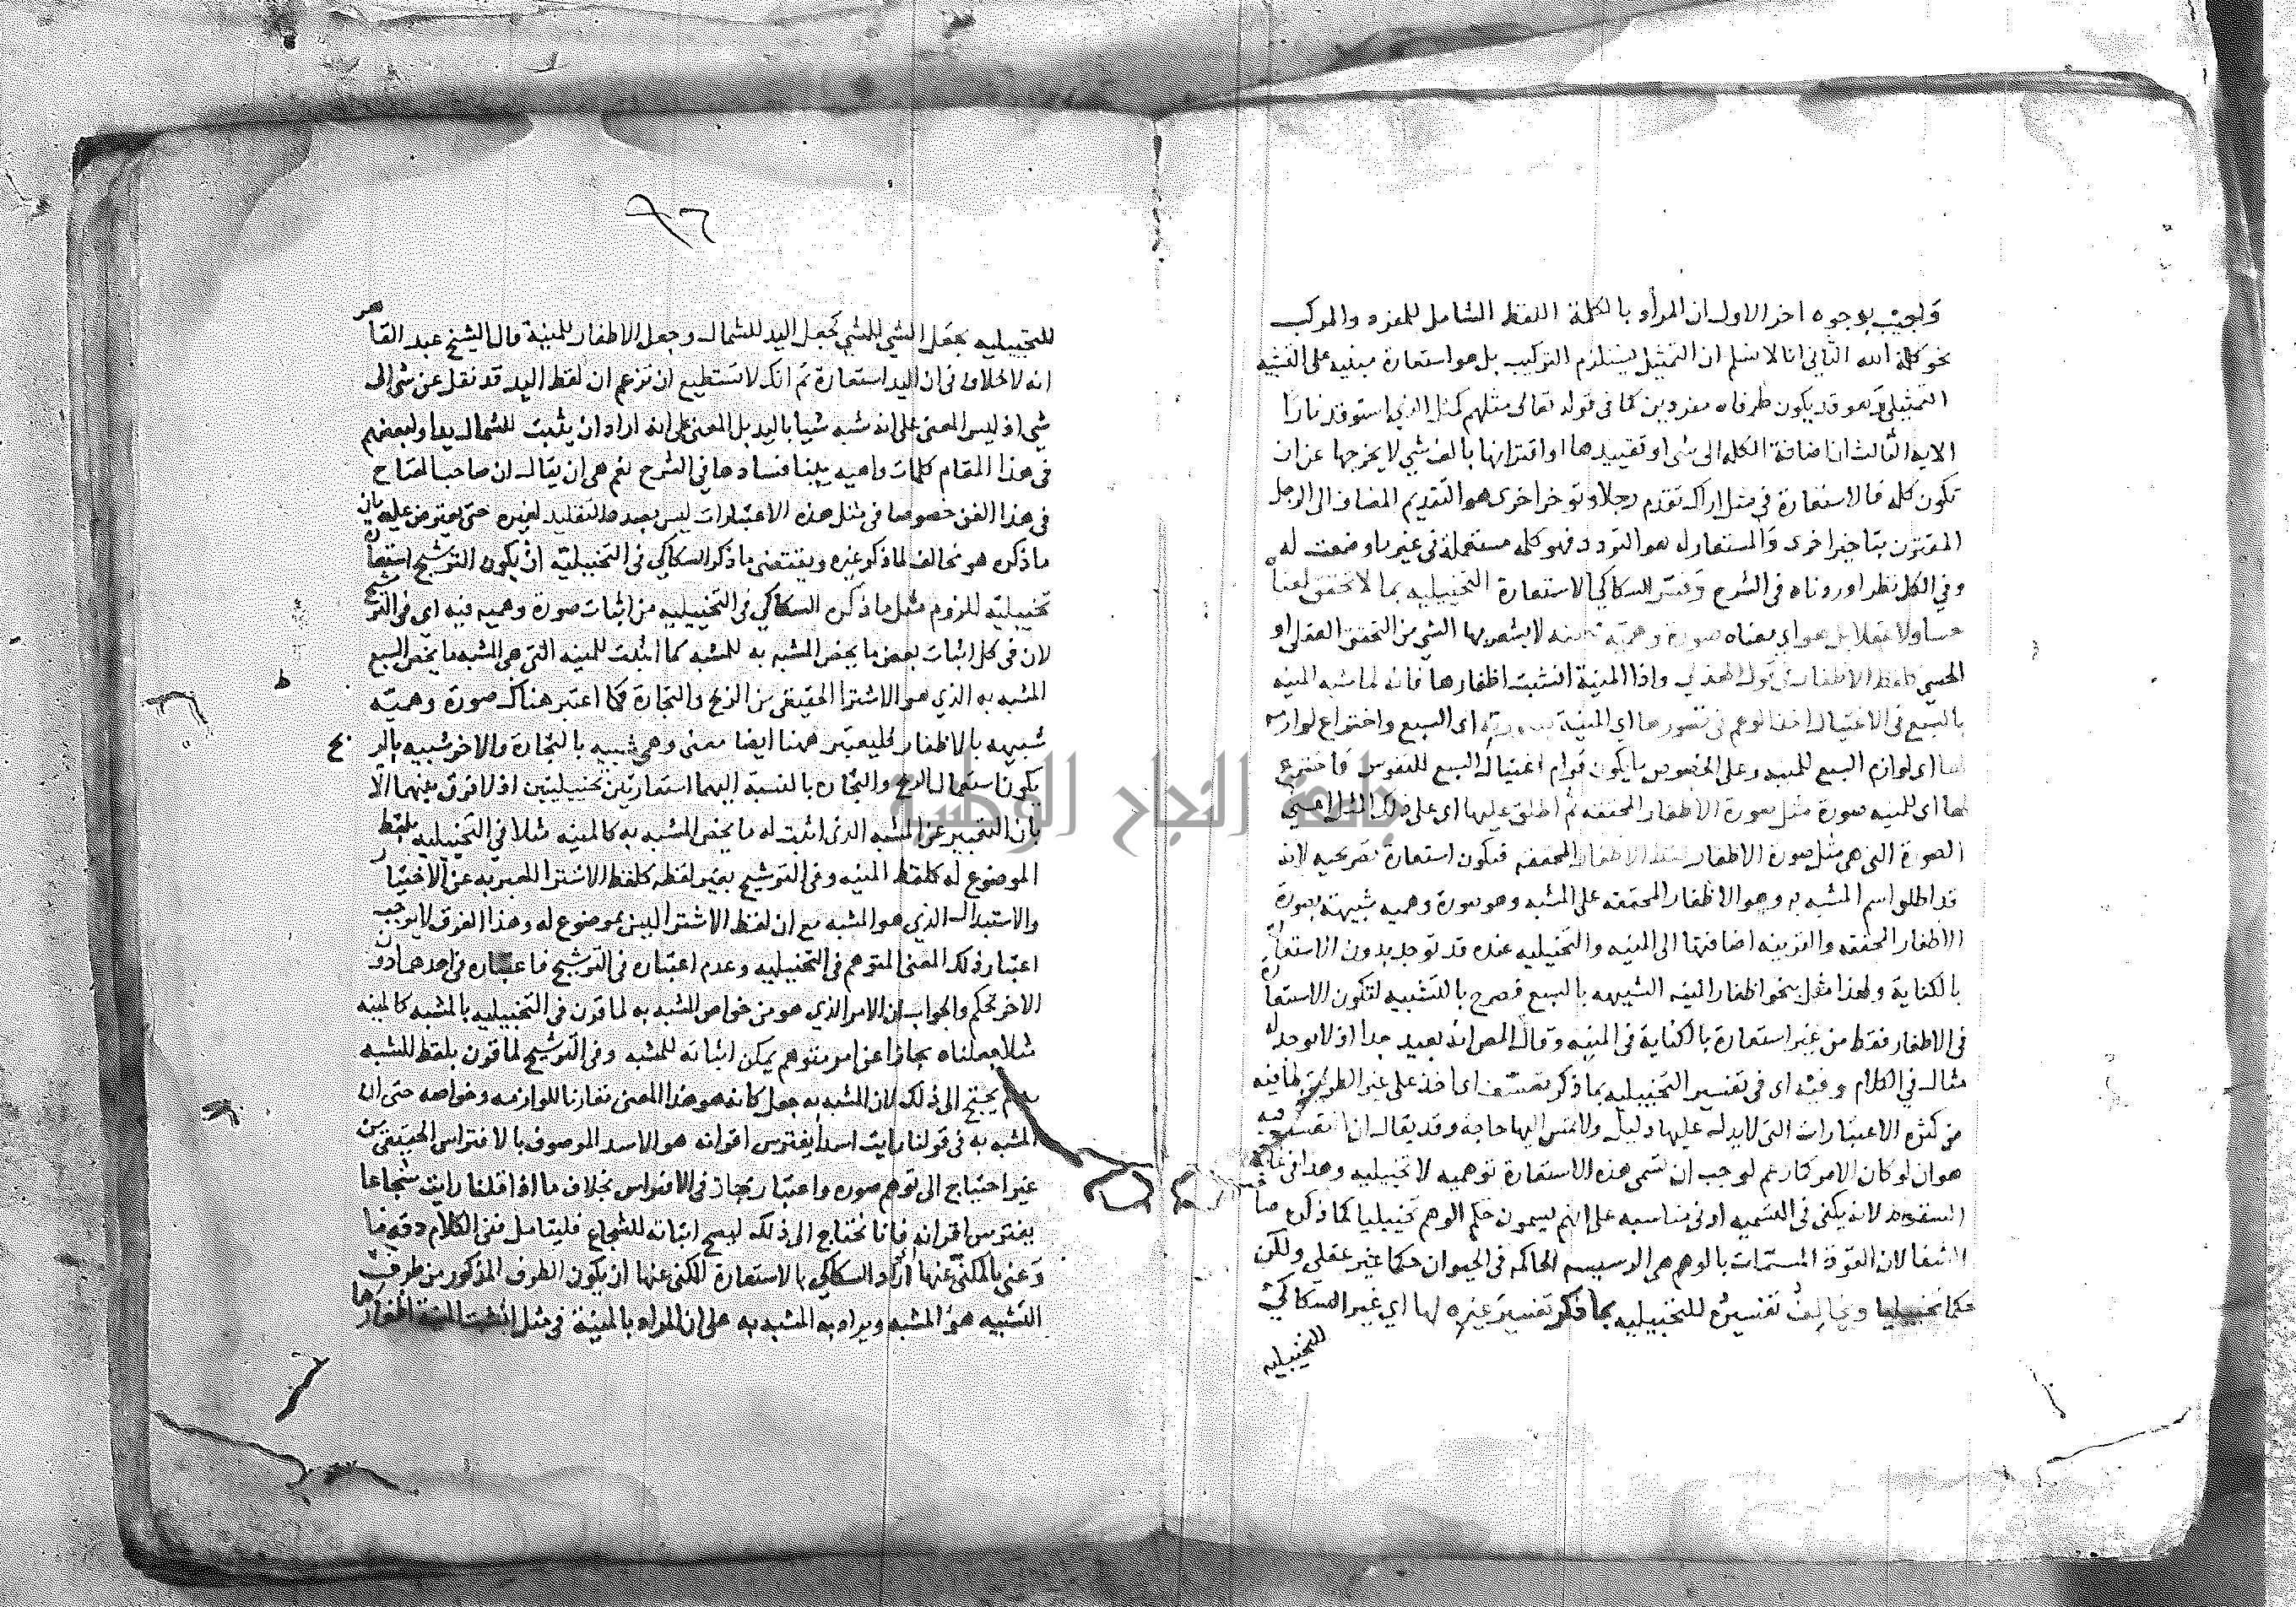 واجيب بوجوه اخر الاول ان المراد بالكلمة اللفظ الشامل للمفرد والمركب
نحو كلمة الله الثاني انا لا نسلم ان التمثيل يستلزم التركيب بل هو استعارة مبنيه على التشبيه
التمثيلي وهو قد يكون طرفاه مفردين كما في قوله تعالى مثلهم كمثل الذي استوقد نارا
الايه الثالث ان اضافة الكلمه الى شي او تقييدها او اقترانها بالف شي لا يخرجها عن ان
تكون كلمه فالاستعارة في مثل اراك تقدم رجلا وتوخر اخرى هو التقديم المضاف الى الرجل
المقترن بتاخير اخرى والمستعار له هو التردد فهو كلمه مستعملة في غير ما وضعت له
وفي الكل نظر اوردناه في الشرح وفسر السكاكي الاستعارة التخييليه بما لا تحقق لمعناه
حسا ولا عقلا بل هو اي معناه صورة وهمية لا يشوبها الشي من التحقق العقلي او
الحسي كلفظ الاظفار في قول الهذلي واذا المنية انشبت اظفارها فانه لما شبه المنيه
بالسبع في الاغتيال اخذ الوهم في تصورها اي المنية بصورته اي السبع واختراع لوازمه
لها اي لوازم السبع للمنيه وعلى الخصوص ما يكون قوام اغتيال السبع للنفوس فاخترع
لها اي للمنيه صورة مثل صورة الاظفار المحققه ثم اطلق عليها اي على ذلك المثل اعني
الصورة التي هي مثل صورة الاظفار لفظ الاظفار المحققه فتكون استعارة تصريحيه لانه
قد اطلق اسم المشبه به وهو الاظفار المحققه على المشبه وهو صورة وهميه شبيهة بصورة
الاظفار المحققه والقرينه اضافتها الى المنيه والتخييليه عنده قد توجد بدون الاستعارة
بالكناية ولهذا مثل بنحو اظفار المنيه الشبيهه بالسبع فصرح بالتشبيه لتكون الاستعارة
في الاظفار فقط من غير استعارة بالكناية في المنيه وقال المص انه بعيد جدا اذ لا يوجد له
مثال في الكلام وفيه اي في تفسير التخييليه بما ذكر تعسف اي اخذ على غير الطريق لما فيه
من كثرة الاعتبارات التي لا يدل عليها دليل ولا تمس اليها حاجة وقد يقال ان التعسف فيه
هو ان لو كان الامر كما زعم لوجب ان تسمى هذه الاستعارة توهميه لا تخييليه وهذا في غاية
السقوط لانه يكفي في التسميه ادنى مناسبه على انهم يسمون حكم الوهم تخييليا كما ذكره صا
الشفا لان القوة المسمات بالوهم هي الرييسه الحاكمه في الحيوان حكما غير عقلي ولكن
حكما تخييليا ويخالف تفسيره للتخييليه بما ذكر تفسير غيره لها اي غير السكاكي
للتخييليه
٩٦
للتخييليه بجعل الشي للشي كجعل اليد للشمال وجعل الاظفار للمنية قال الشيخ عبد القاهر
انه لا خلاف في ان اليد استعارة ثم انك لا تستطيع ان تزعم ان لفظ اليد قد نقل عن شي الى
شي اذ ليس المعنى على انه شبه شيا باليد بل المعنى على انه اراد ان يثبت للشمال يدا ولبعضهم
في هذا المقام كلمات واهيه بينا فسادها في الشرح نعم هي ان يقال ان صاحب المفتاح
في هذا الفن خصوصا في مثل هذه الاعتبارات ليس بصدد التقليد لغيره حتى يعترض عليه بان
ما ذكره هو مخالف لما ذكر غيره ويقتضي ما ذكر السكاكي في التخييليه ان يكون الترشيح استعارة
تخييليه للزوم مثل ما ذكره السكاكي في التخييليه من اثبات صورة وهميه فيه اي في الترشيح
لان في كل اثبات بعض ما يخص المشبه به للمشبه كما اثبت للمنيه التي هي المشبه ما يخص السبع
المشبه به الذي هو الاشترا الحقيقي من الربح والتجارة فكما اعتبر هناك صورة وهميه
شبيهه بالاظفار فليعتبر ههنا ايضا معنى وهمي شبيه بالتجارة والاخر شبيه بالربح
يكون استعمال الربح والتجاره بالنسبة اليهما استعارتين تخييليتين اذ لا فرق بينهما الا
بان التعبير عن المشبه الذي اثبت له ما يخص المشبه به كالمنيه مثلا في التخييليه بلفظ
الموضوع له كلفظ المنيه وفي الترشيح بغير لفظه كلفظ الاشترا المعبر به عن الاختيار
والاستبدال الذي هو المشبه مع ان لفظ الاشترا ليس بموضوع له وهذا الفرق لا يوجب
اعتبار ذلك المعنى المتوهم في التخييليه وعدم اعتباره في الترشيح فاعتباره في احدهما دون
الاخر تحكم والجواب ان الامر الذي هو من خواص المشبه به لما قرن في التخييليه بالمشبه كالمنيه
مثلا جعلناه مجازا عن امر متوهم يمكن اثباته للمشبه وفي الترشيح لما قرن بلفظ المشبه
به لم يحتج الى ذلك لان المشبه به جعل كانه هو هذا المعنى مقارنا للوازمه وخواصه حتى ان
المشبه به في قولنا رايت اسدا يفترس اقرانه هو الاسد الموصوف بالافتراس الحقيقي من
غير احتياج الى توهم صوره واعتبار مجاز في الافتراس بخلاف ما اذا قلنا رايت شجاعا
يفترس اقرانه فانا نحتاج الى ذلك ليصح اثباته للشجاع فليتامل ففي الكلام دقه ما
وعنى بالمكني عنها اراد السكاكي بالاستعارة المكني عنها ان يكون الطرف المذكور من طرفي
التشبيه هو المشبه ويراد به المشبه به على ان المراد بالمنية في مثل انشبت المنية اظفارها
جامعة النجاح الوطنية